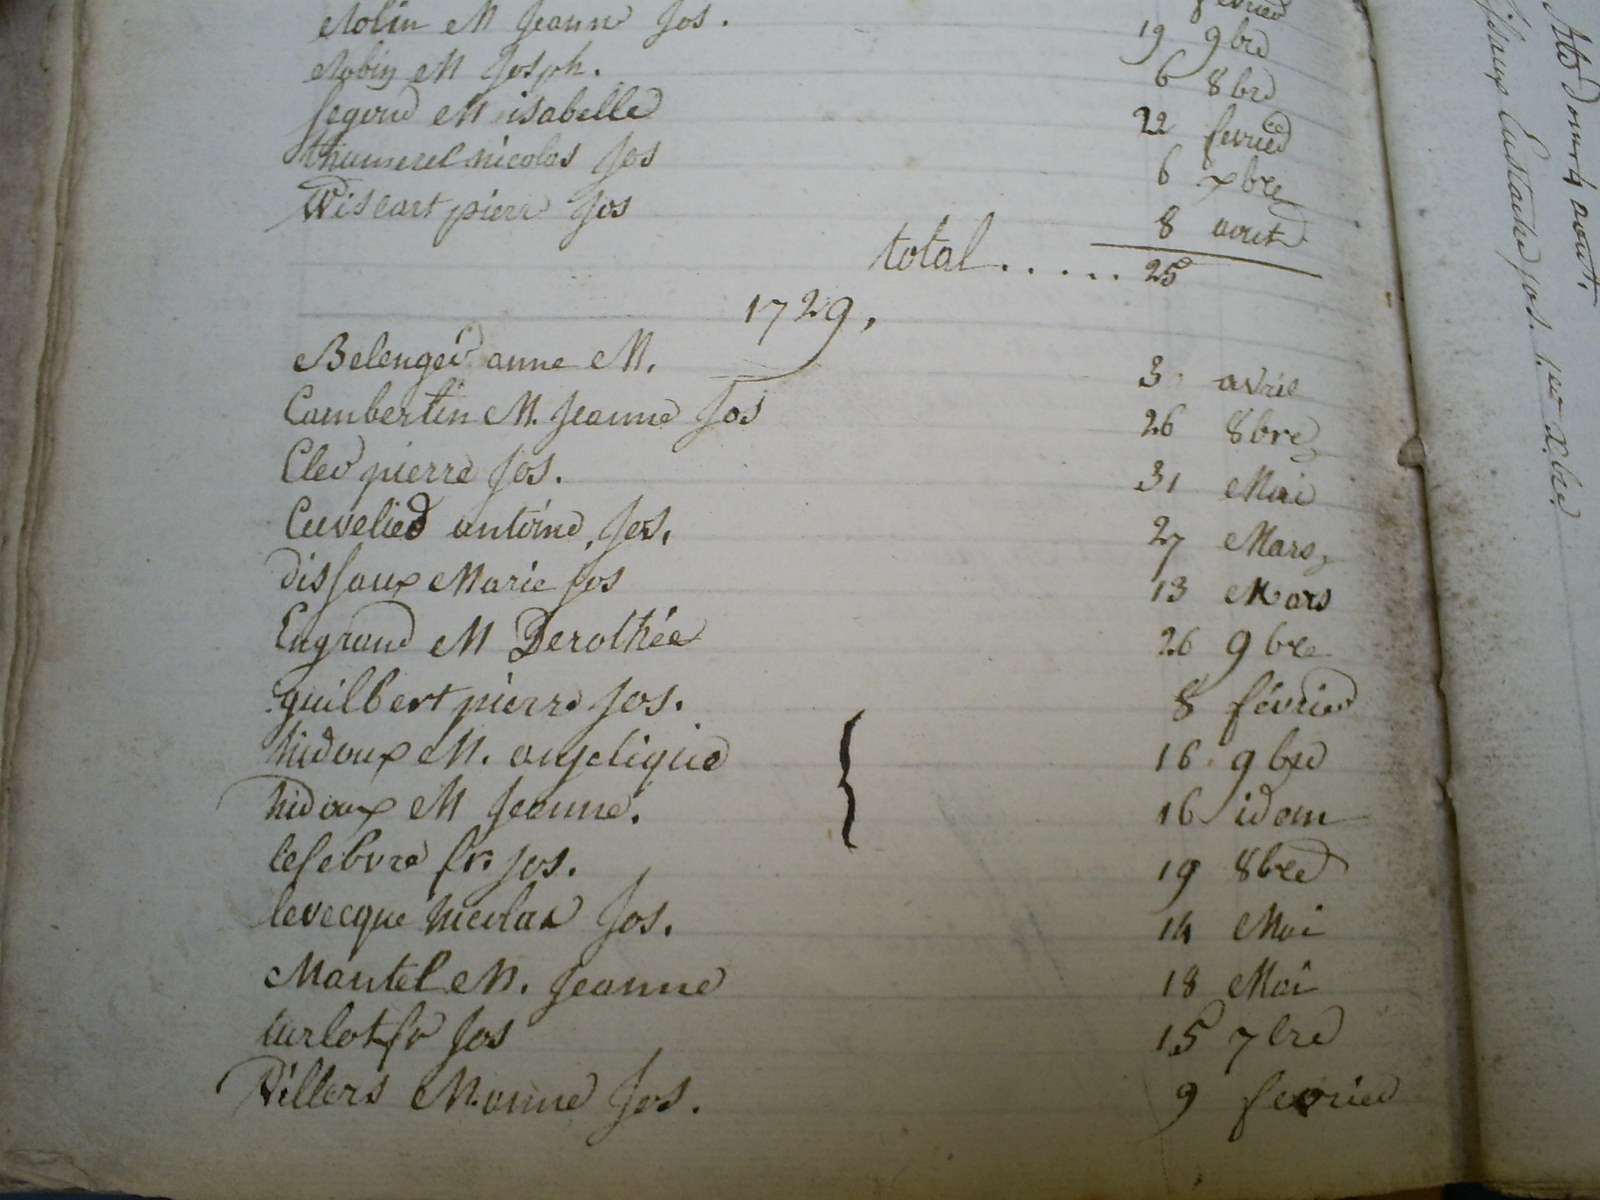 Robin M Jeanne Jos. fevrier
Robin M Josph. 19 9bre
Segond M isabelle 6 8bre
thumerel nicolas Jos 22 fevrier
Wiscart pierre Jos 6 xbre
8 aout
total ..... 25
1729,
Belenger anne M. 3 avril
Cambertin M. Jeanne Jos 26 8bre
Cler pierre Jos. 31 Mai
Cuvelier antoine Jos. 27 Mars
dissaux Marie Jos 13 Mars
Engrand M Dorothée 26 9bre
guilbert pierre Jos. 8 février
hidoux M. angelique { 16 9bre
hidoux M Jeanne. 16 idem
lefebvre fr. Jos. 19 8bre
levecque Nicolas Jos. 14 Mai
Mantel M. Jeanne 18 Mai
turlot fr Jos 15 7bre
Villers M. anne Jos. 9 fevrier
aout.
Eustache Jos. 1.er xbre